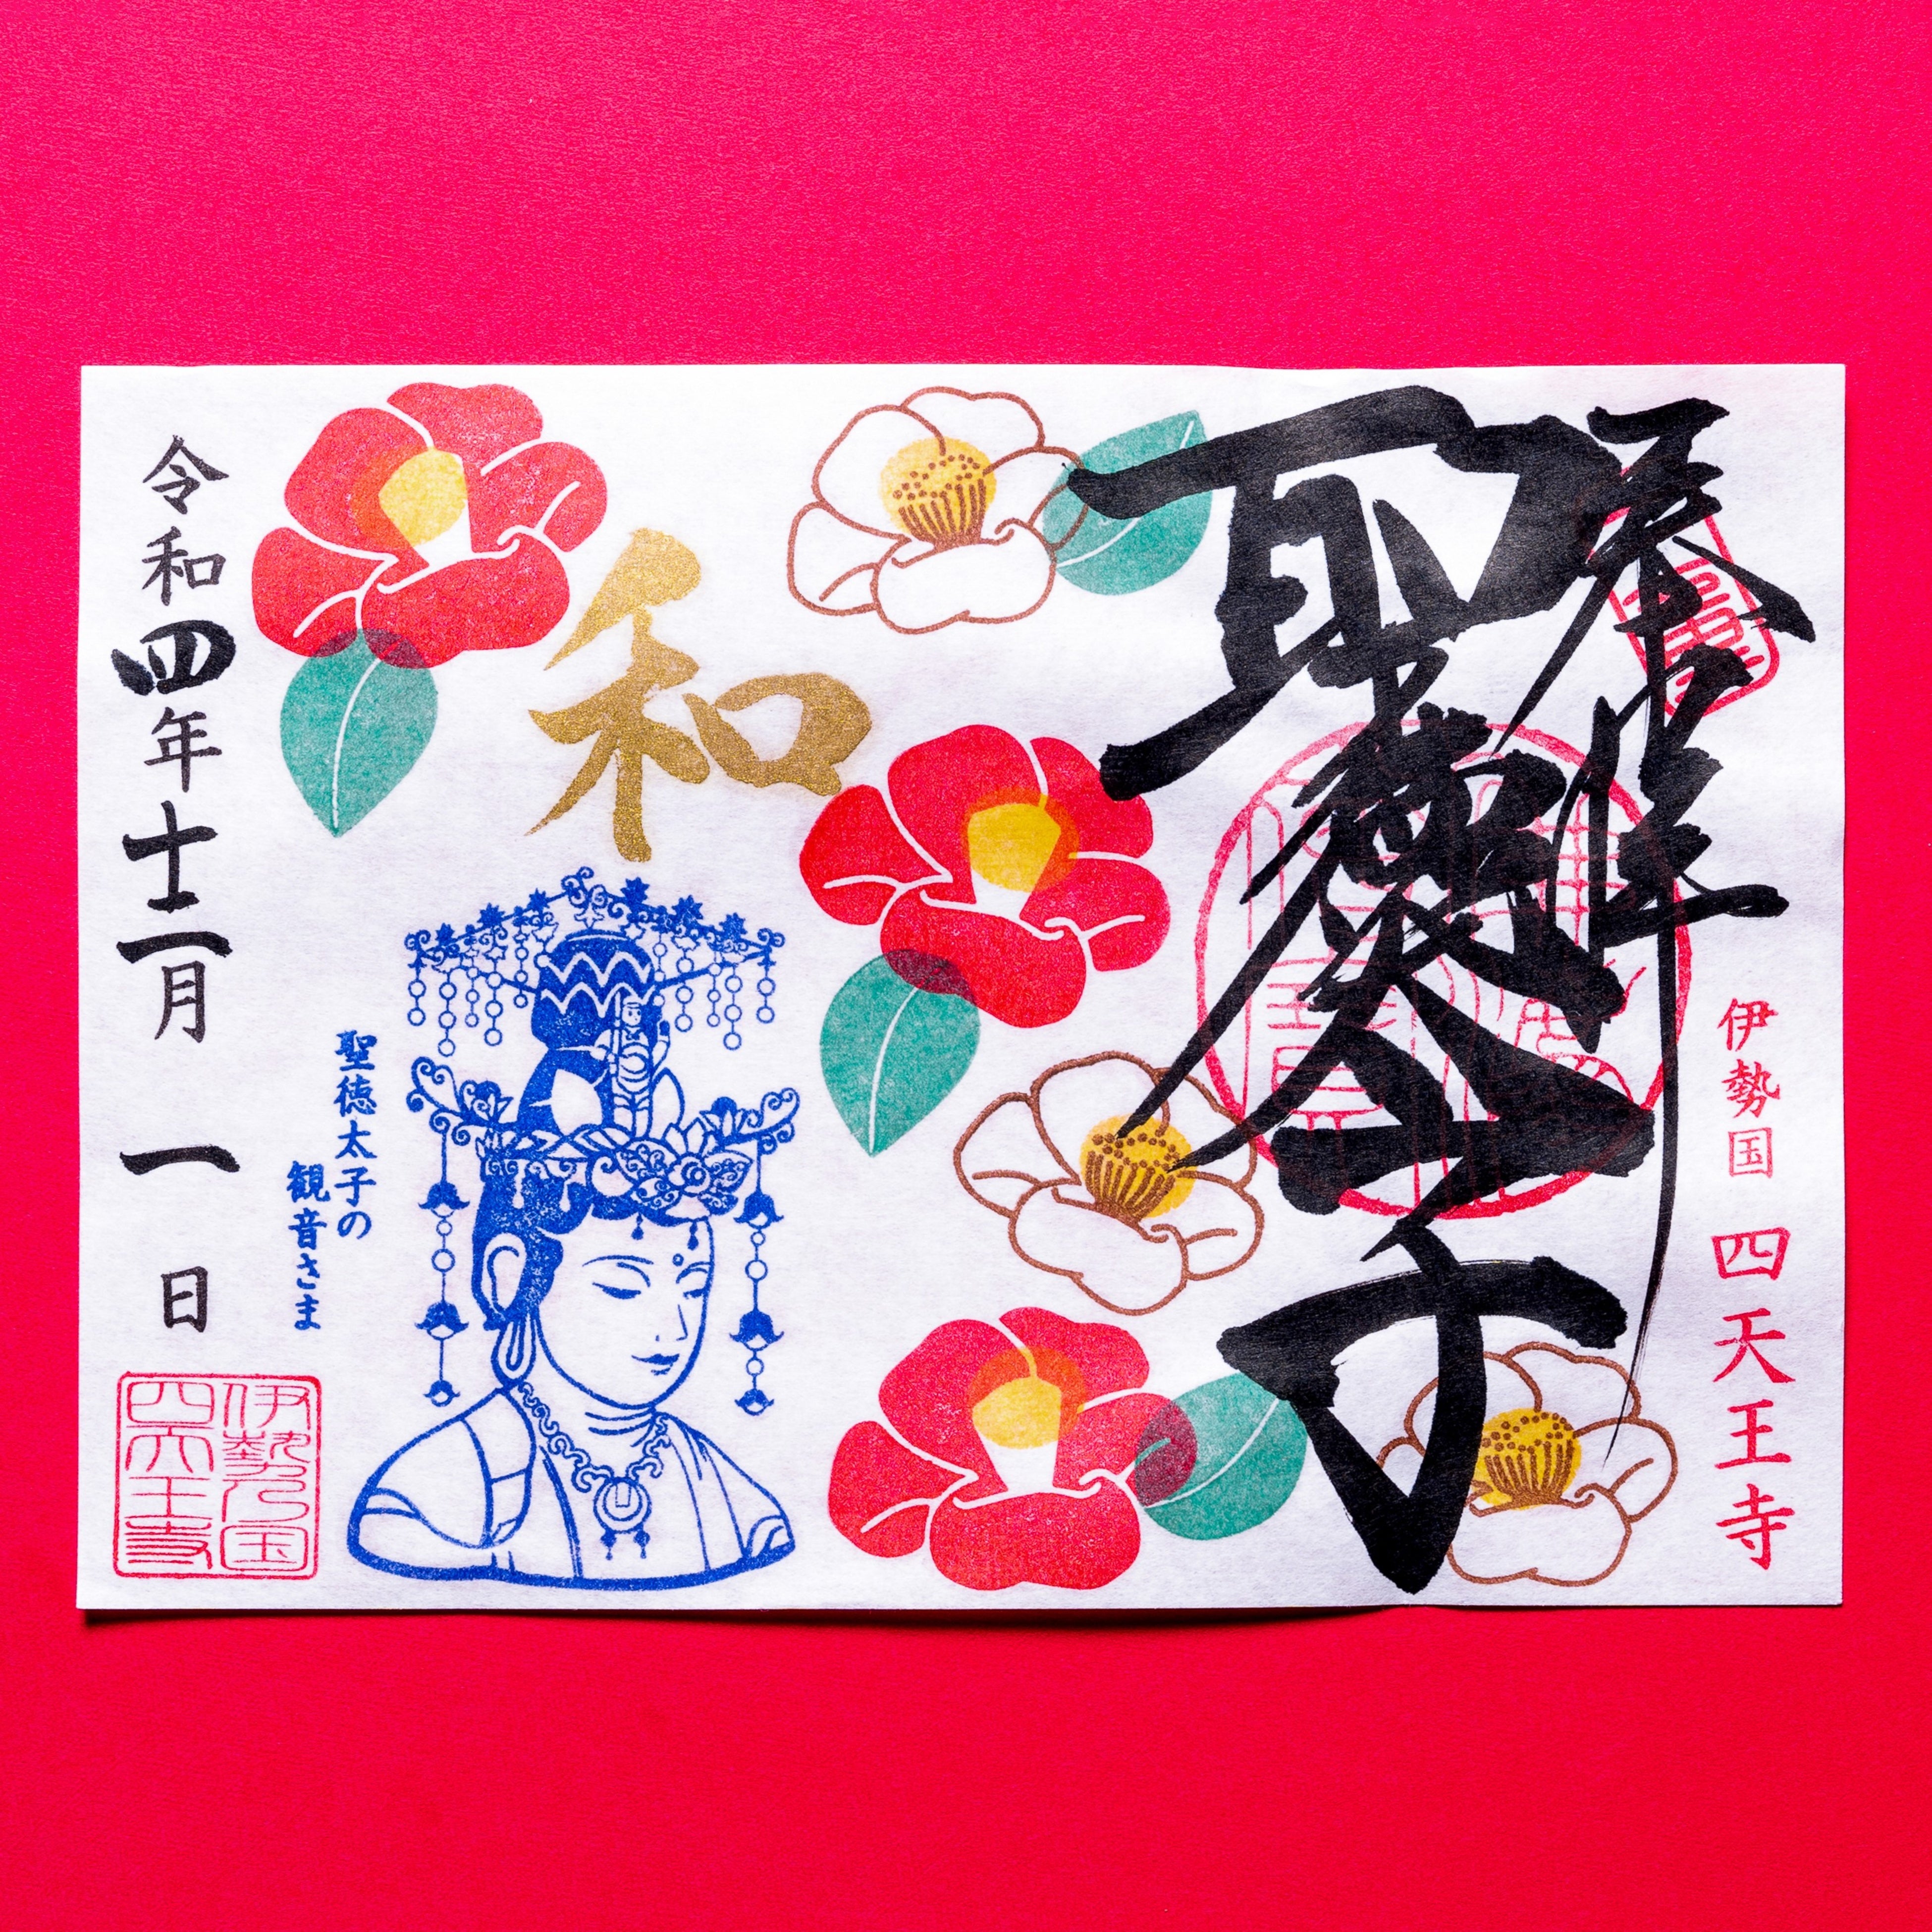 奉拝
聖徳太子
伊勢国 四天王寺
和
聖徳太子の
観音さま
令和四年十二月一日
伊勢乃国
四天王寺